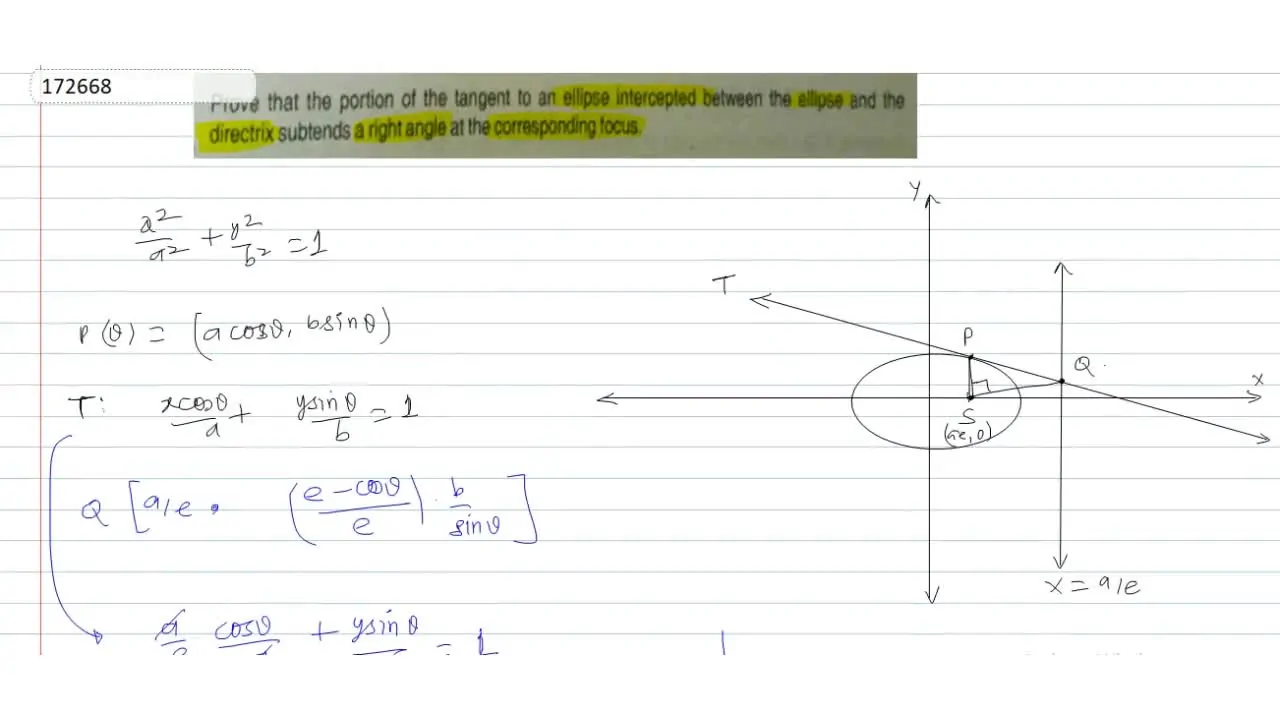 172668
Prove that the portion of the tangent to an ellipse intercepted between the ellipse and the
directrix subtends a right angle at the corresponding focus.
x²/a² + y²/b² = 1
P(θ) = (a cosθ, b sinθ)
T: xcosθ/a + ysinθ/b = 1
Q [a/e, ((e - cosθ)/e) · b/sinθ]
cosθ + ysinθ = 1
y
T
P
Q
x
S
(ae, 0)
x = a/e